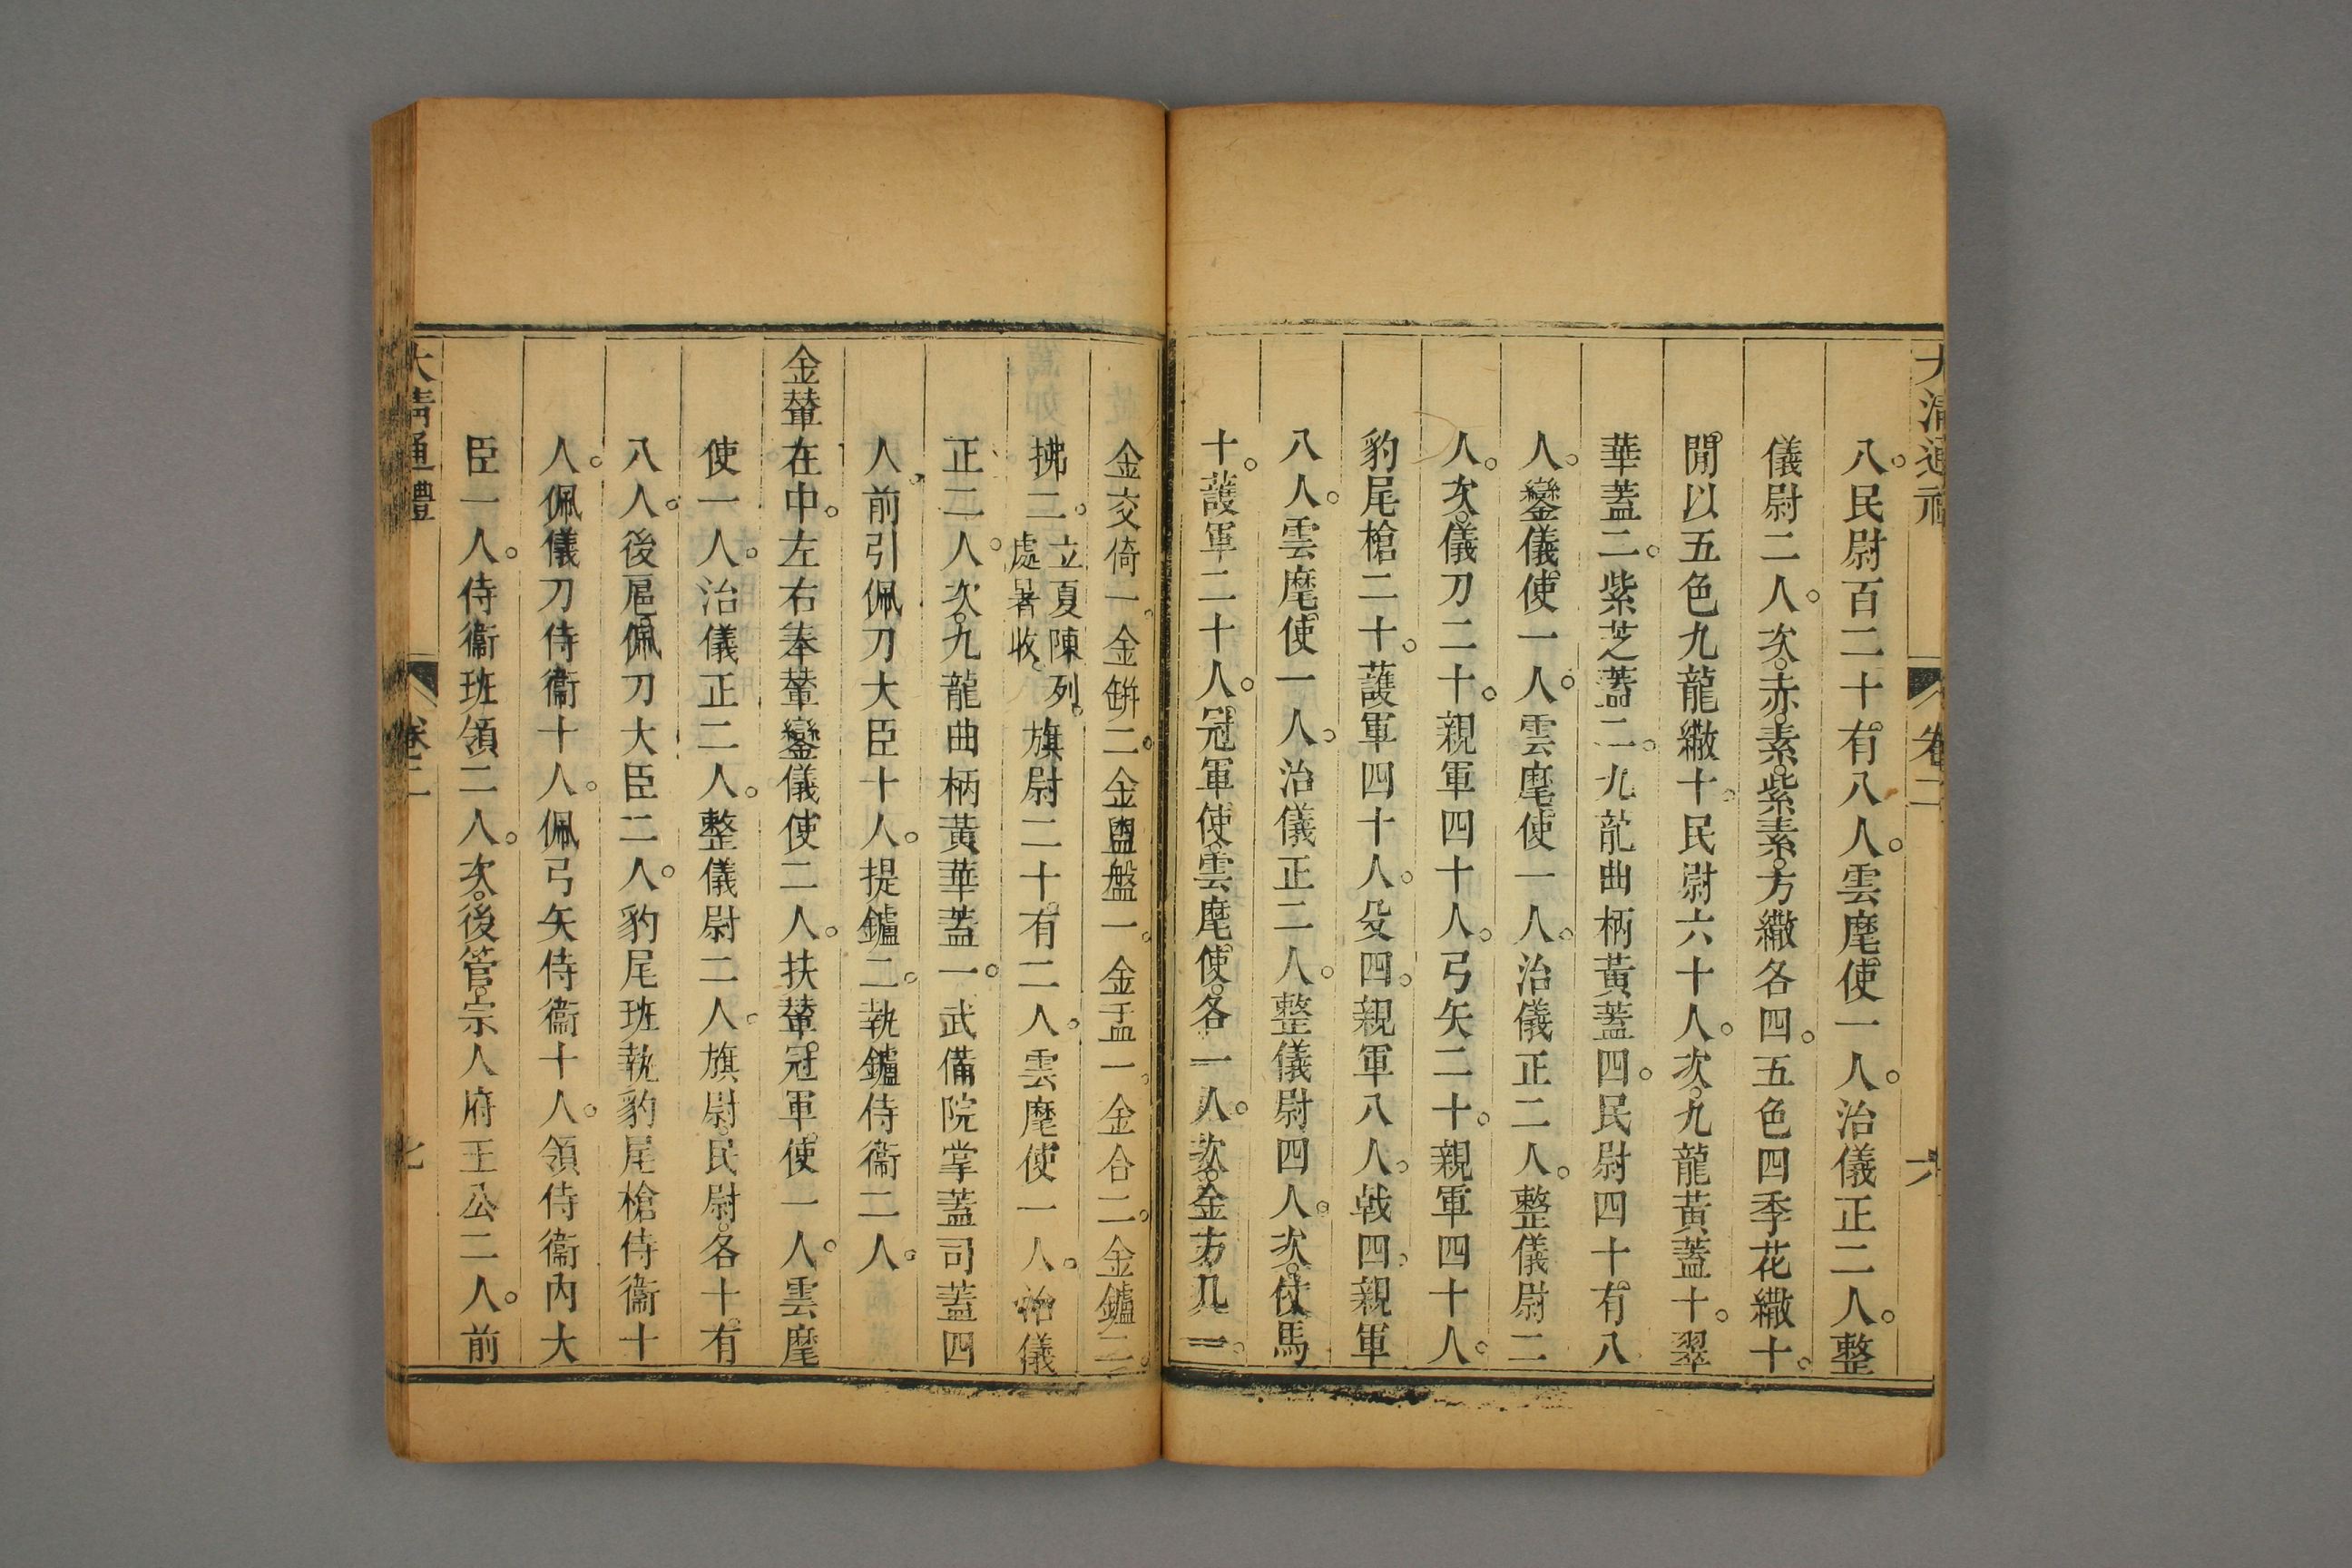 大清通禮 卷二 六
八。民尉百二十有八人。雲麾使一人。治儀正二人。整
儀尉二人。次。赤素。紫素。方繖各四。五色四季花繖十。
閒以五色九龍繖十。民尉六十人。次。九龍黃蓋十。翠
華蓋二。紫芝蓋二。九龍曲柄黃蓋四。民尉四十有八
人。鑾儀使一人。雲麾使一人。治儀正二人。整儀尉二
人。次。儀刀二十。親軍四十人。弓矢二十。親軍四十人。
豹尾槍二十。護軍四十人。殳四。親軍八人。戟四。親軍
八人。雲麾使一人。治儀正二人。整儀尉四人。次。仗馬
十。護軍二十人。冠軍使。雲麾使。各一人。次。金方几一。
金交倚一。金缾二。金盥盤一。金盂一。金合二。金鑪二。
拂二。立夏陳列。處暑收。旗尉二十有二人。雲麾使一人。治儀
正二人。次。九龍曲柄黃華蓋一。武備院掌蓋司蓋四
人。前引佩刀大臣十人。提鑪二。執鑪侍衞二人。
金輦在中。左右奉輦鑾儀使二人。扶輦。冠軍使一人。雲麾
使一人。治儀正二人。整儀尉二人。旗尉。民尉。各十有
八人。後扈。佩刀大臣二人。豹尾班執豹尾槍侍衞十
人。佩儀刀侍衞十人。佩弓矢侍衞十人。領侍衞內大
臣一人。侍衞班領二人。次。後管。宗人府王公二人。前
大清通禮 卷二 七